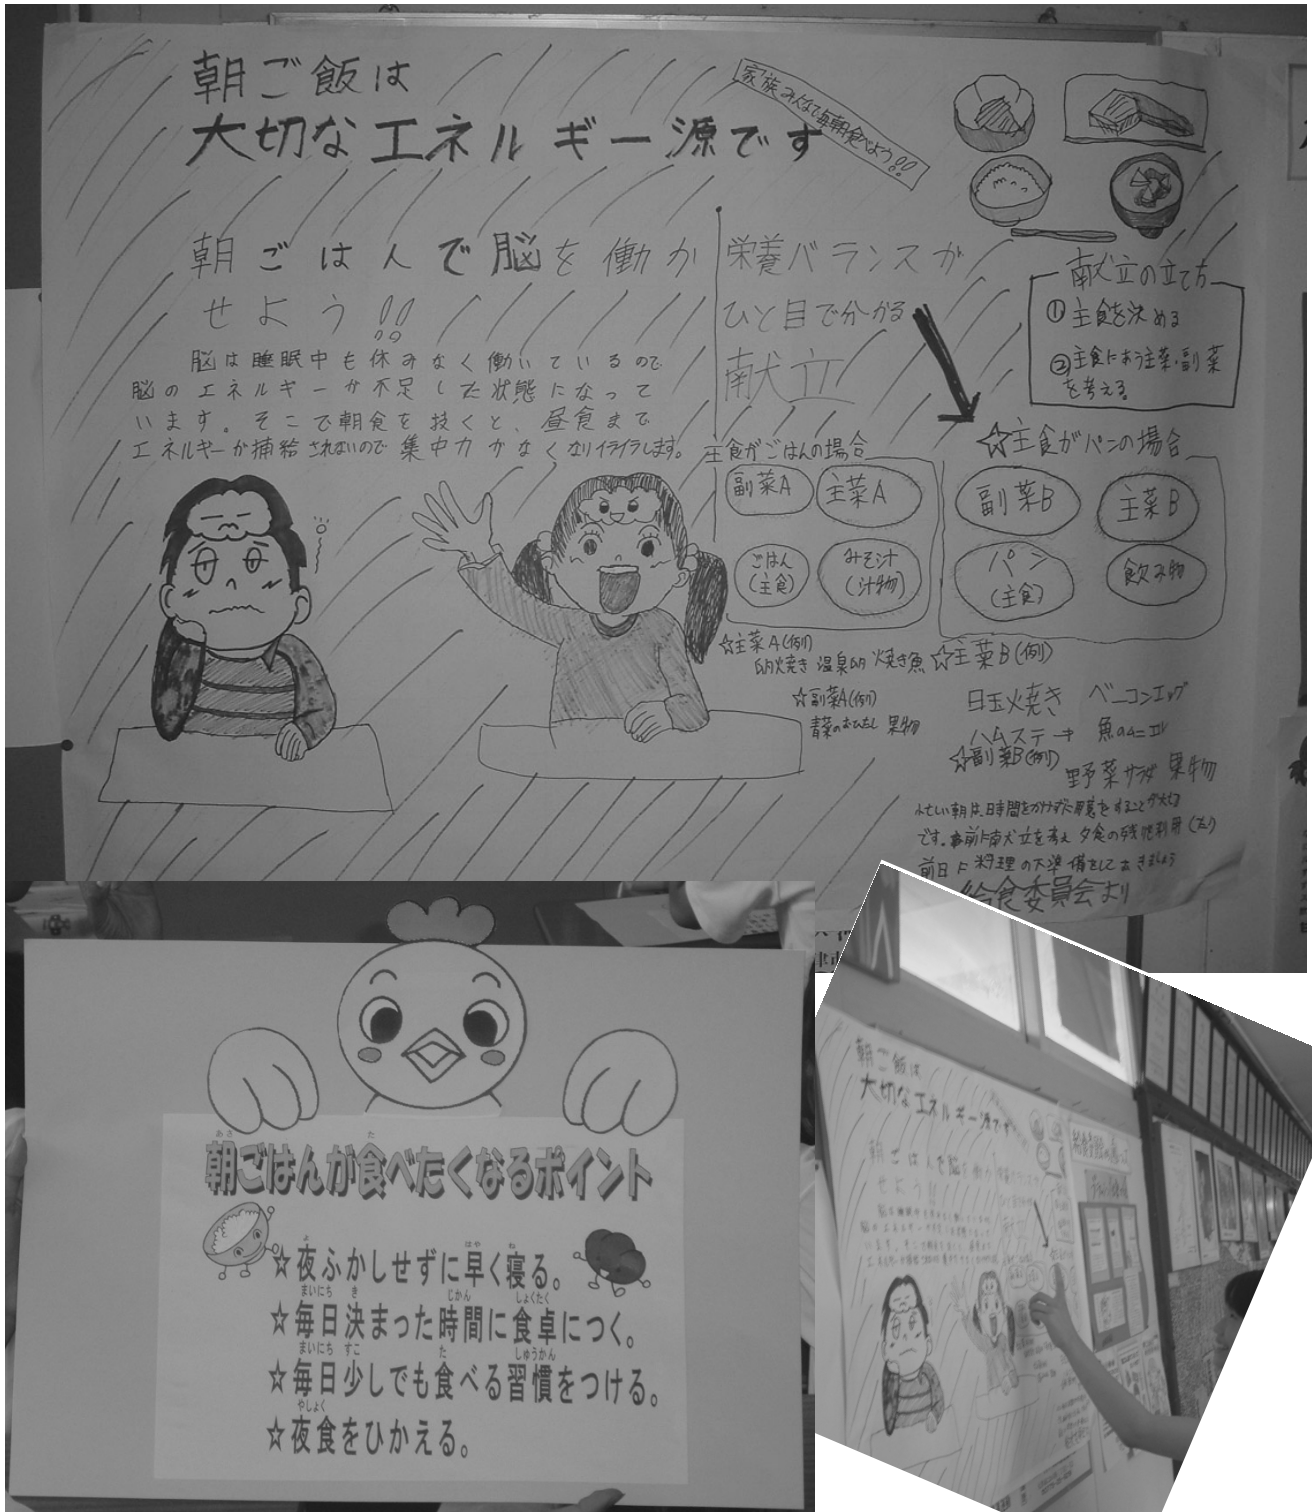 朝ご飯は
大切なエネルギー源です
家族みんなで毎朝食べよう!!
朝ごはんで脳を働か
せよう!!
脳は睡眠中も休みなく働いているので
脳のエネルギーが不足した状態になって
います。そこで朝食を技くと、昼食まで
エネルギーが補給されないので集中力がなくなりイライラします。
栄養バランスが
ひと目で分かる
献立
献立の立て方
① 主食を決める
② 主食にあう主菜・副菜
を考える。
主食がごはんの場合
副菜A
主菜A
ごはん
(主食)
みそ汁
(汁物)
☆主菜A(例)
卵焼き 温泉卵 焼き魚
☆副菜A(例)
青菜のおひたし 果物
☆主食がパンの場合
副菜B
主菜B
パン
(主食)
飲み物
☆主菜B(例)
目玉焼き ベーコンエッグ
ハムステーキ 魚のムニエル
☆副菜B(例)
野菜サラダ 果物
忙しい朝は、時間をかけずに用意をすることが大切
です。事前に献立を考え 夕食の残り
前日に料理の下準備をしておきましょう
給食委員会より
朝ごはんが食べたくなるポイント
☆夜ふかしせずに早く寝る。
☆毎日決まった時間に食卓につく。
☆毎日少しでも食べる習慣をつける。
☆夜食をひかえる。
朝ご飯は
大切なエネルギー源です
朝ごはんで脳を働か
せよう!!